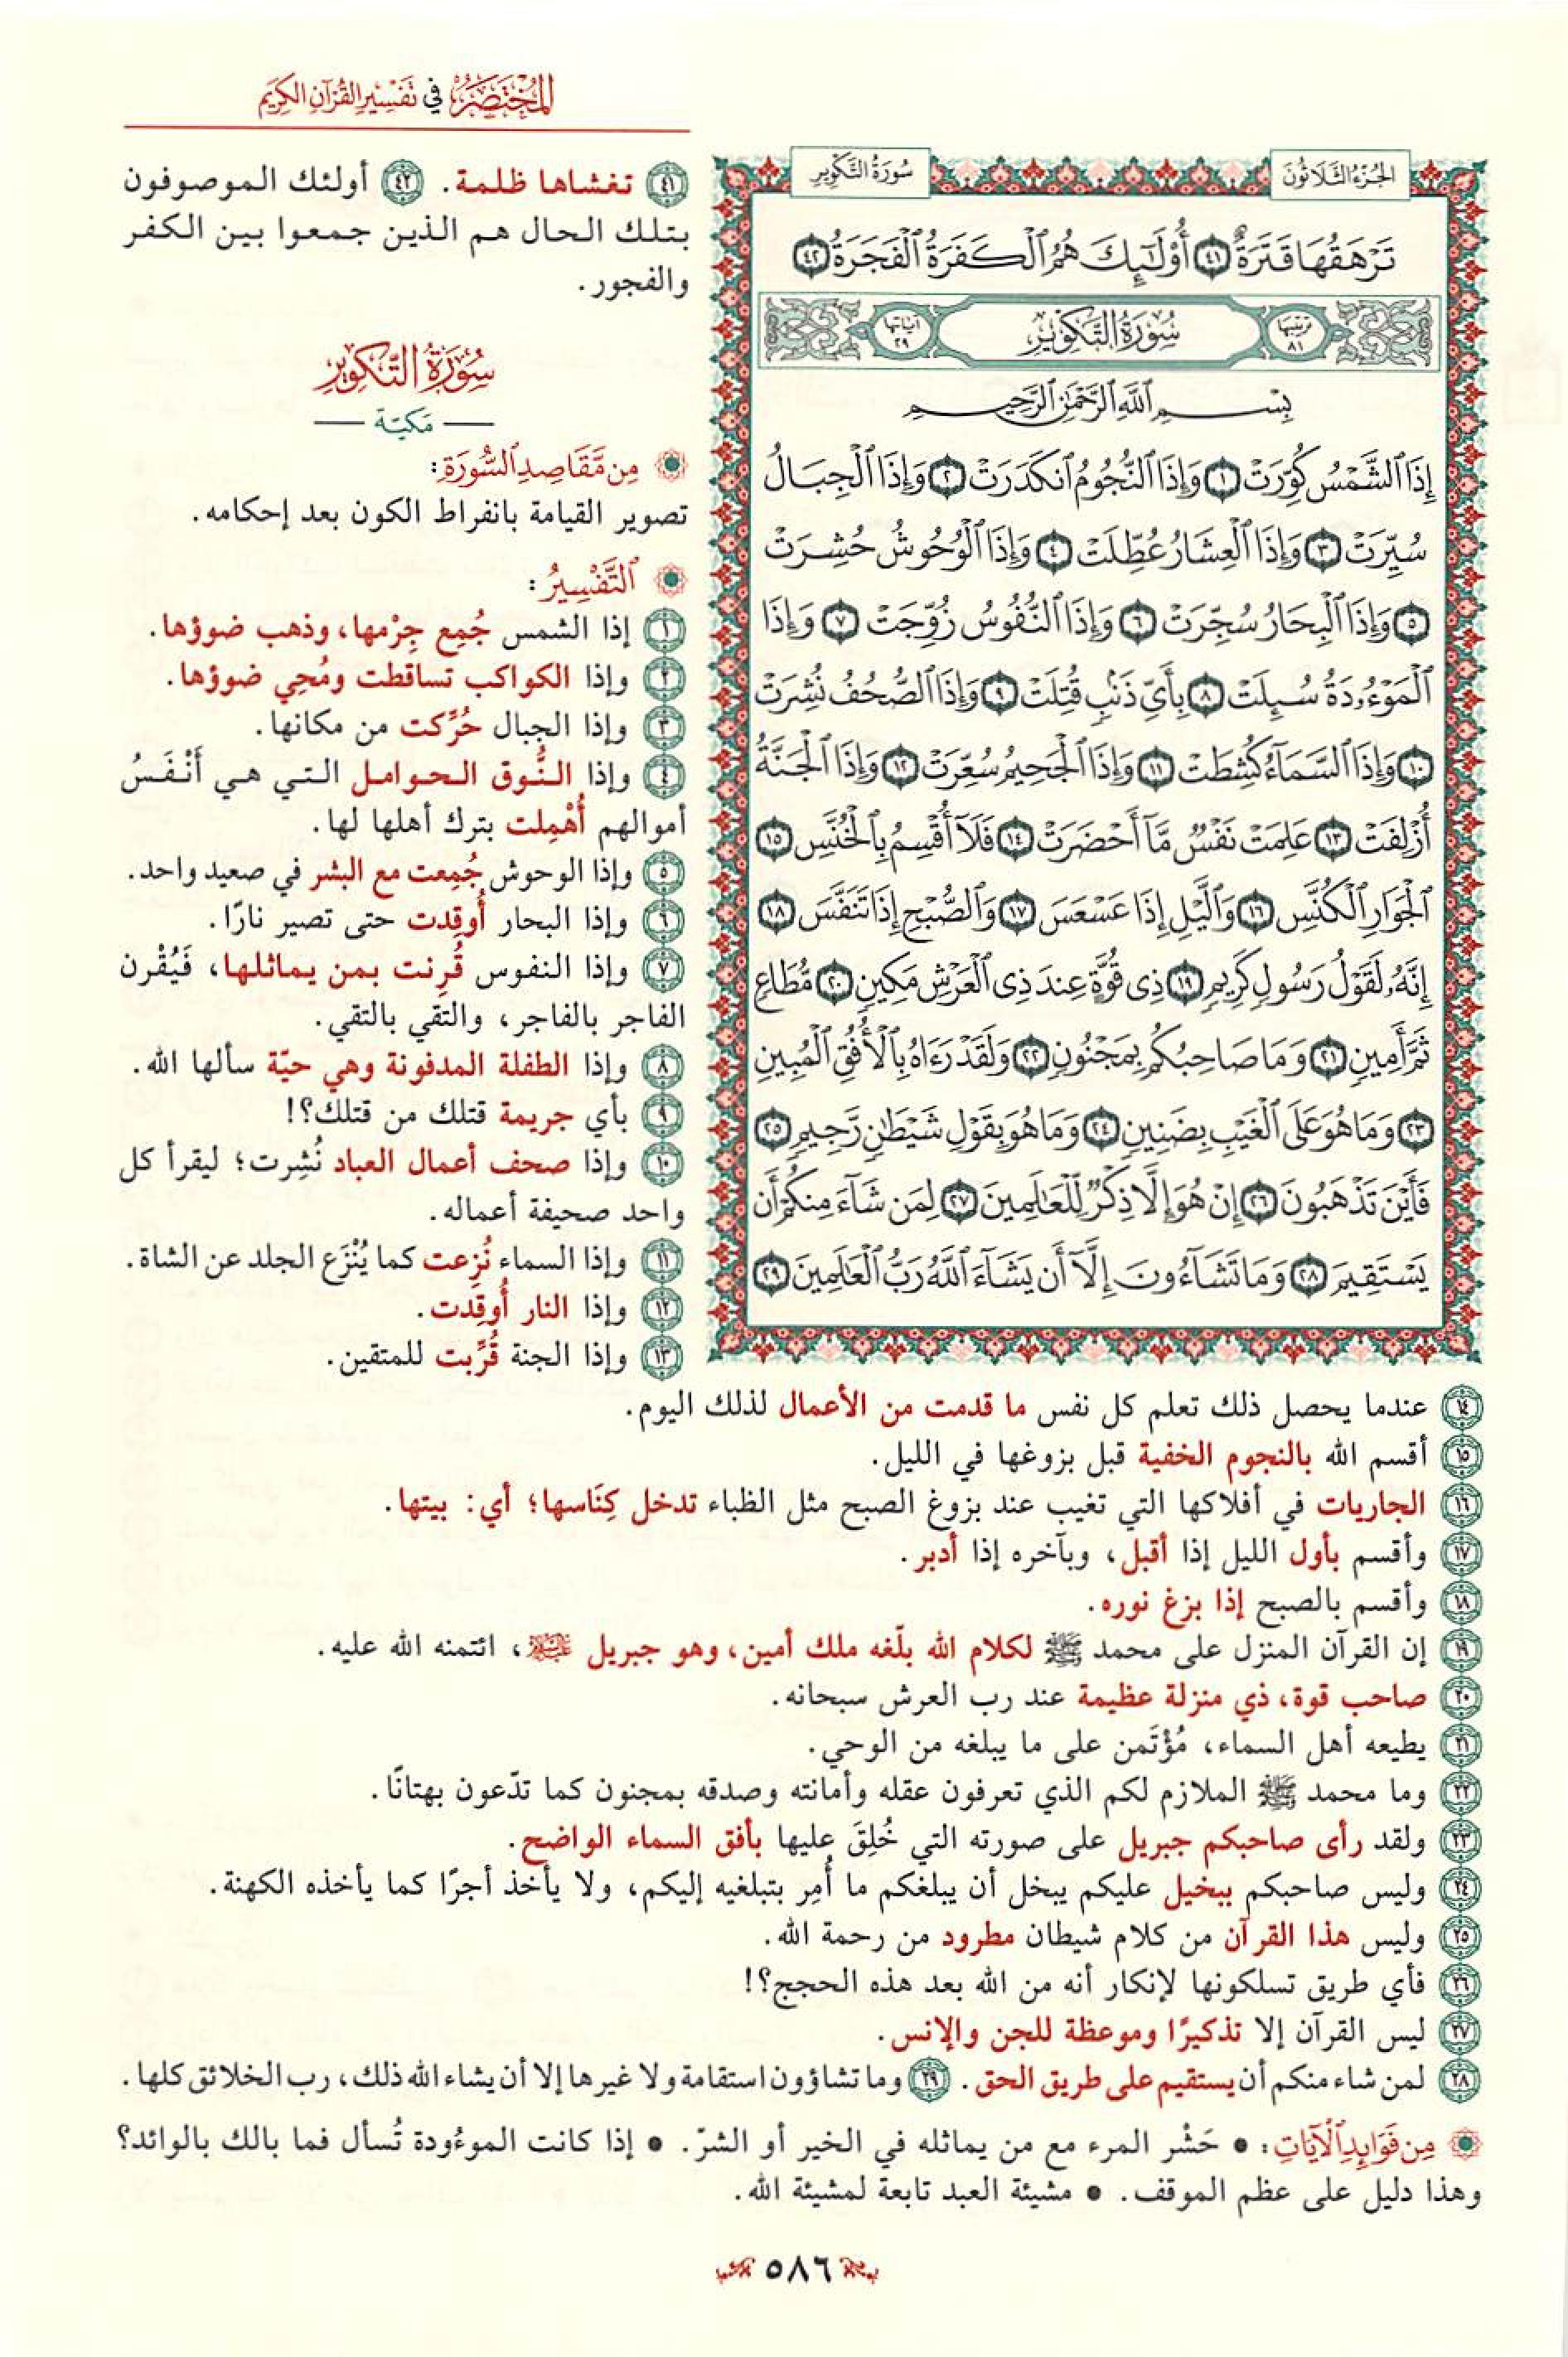 المختصر في تفسير القرآن الكريم
الجزء الثلاثون
سورة التكوير
تَرْهَقُهَا قَتَرَةٌ ٤١ أُوْلَٰٓئِكَ هُمُ ٱلْكَفَرَةُ ٱلْفَجَرَةُ ٤٢
ترتيبها ٨١
سورة التكوير
آياتها ٢٩
بِسْمِ ٱللَّهِ ٱلرَّحْمَٰنِ ٱلرَّحِيمِ
إِذَا ٱلشَّمْسُ كُوِّرَتْ ١ وَإِذَا ٱلنُّجُومُ ٱنكَدَرَتْ ٢ وَإِذَا ٱلْجِبَالُ
سُيِّرَتْ ٣ وَإِذَا ٱلْعِشَارُ عُطِّلَتْ ٤ وَإِذَا ٱلْوُحُوشُ حُشِرَتْ
٥ وَإِذَا ٱلْبِحَارُ سُجِّرَتْ ٦ وَإِذَا ٱلنُّفُوسُ زُوِّجَتْ ٧ وَإِذَا
ٱلْمَوْءُۥدَةُ سُئِلَتْ ٨ بِأَيِّ ذَنۢبٍ قُتِلَتْ ٩ وَإِذَا ٱلصُّحُفُ نُشِرَتْ
١٠ وَإِذَا ٱلسَّمَآءُ كُشِطَتْ ١١ وَإِذَا ٱلْجَحِيمُ سُعِّرَتْ ١٢ وَإِذَا ٱلْجَنَّةُ
أُزْلِفَتْ ١٣ عَلِمَتْ نَفْسٌ مَّآ أَحْضَرَتْ ١٤ فَلَآ أُقْسِمُ بِٱلْخُنَّسِ ١٥
ٱلْجَوَارِ ٱلْكُنَّسِ ١٦ وَٱلَّيْلِ إِذَا عَسْعَسَ ١٧ وَٱلصُّبْحِ إِذَا تَنَفَّسَ ١٨
إِنَّهُۥ لَقَوْلُ رَسُولٍ كَرِيمٍ ١٩ ذِي قُوَّةٍ عِندَ ذِي ٱلْعَرْشِ مَكِينٍ ٢٠ مُّطَاعٍ
ثَمَّ أَمِينٍ ٢١ وَمَا صَاحِبُكُم بِمَجْنُونٍ ٢٢ وَلَقَدْ رَءَاهُ بِٱلْأُفُقِ ٱلْمُبِينِ
٢٣ وَمَا هُوَ عَلَى ٱلْغَيْبِ بِضَنِينٍ ٢٤ وَمَا هُوَ بِقَوْلِ شَيْطَٰنٍ رَّجِيمٍ ٢٥
فَأَيْنَ تَذْهَبُونَ ٢٦ إِنْ هُوَ إِلَّا ذِكْرٌ لِّلْعَٰلَمِينَ ٢٧ لِمَن شَآءَ مِنكُمْ أَن
يَسْتَقِيمَ ٢٨ وَمَا تَشَآءُونَ إِلَّآ أَن يَشَآءَ ٱللَّهُ رَبُّ ٱلْعَٰلَمِينَ ٢٩
٤١ تغشاها ظلمة. ٤٢ أولئك الموصوفون
بتلك الحال هم الذين جمعوا بين الكفر
والفجور.
سورة التكوير
مكية
من مقاصد السورة:
تصوير القيامة بانفراط الكون بعد إحكامه.
التفسير:
١ إذا الشمس جُمِع جِرْمها، وذهب ضوؤها.
٢ وإذا الكواكب تساقطت ومُحِي ضوؤها.
٣ وإذا الجبال حُرِّكت من مكانها.
٤ وإذا النُّوق الحوامل التي هي أَنْفَسُ
أموالهم أُهْمِلت بترك أهلها لها.
٥ وإذا الوحوش جُمِعت مع البشر في صعيد واحد.
٦ وإذا البحار أُوقِدت حتى تصير نارًا.
٧ وإذا النفوس قُرِنت بمن يماثلها، فَيُقْرن
الفاجر بالفاجر، والتقي بالتقي.
٨ وإذا الطفلة المدفونة وهي حيّة سألها الله.
٩ بأي جريمة قتلك من قتلك؟!
١٠ وإذا صحف أعمال العباد نُشِرت؛ ليقرأ كل
واحد صحيفة أعماله.
١١ وإذا السماء نُزِعت كما يُنْزَع الجلد عن الشاة.
١٢ وإذا النار أُوقِدت.
١٣ وإذا الجنة قُرِّبت للمتقين.
١٤ عندما يحصل ذلك تعلم كل نفس ما قدمت من الأعمال لذلك اليوم.
١٥ أقسم الله بالنجوم الخفية قبل بزوغها في الليل.
١٦ الجاريات في أفلاكها التي تغيب عند بزوغ الصبح مثل الظباء تدخل كِنَاسها؛ أي: بيتها.
١٧ وأقسم بأول الليل إذا أقبل، وبآخره إذا أدبر.
١٨ وأقسم بالصبح إذا بزغ نوره.
١٩ إن القرآن المنزل على محمد ﷺ لكلام الله بلّغه ملك أمين، وهو جبريل عليه السلام، ائتمنه الله عليه.
٢٠ صاحب قوة، ذي منزلة عظيمة عند رب العرش سبحانه.
٢١ يطيعه أهل السماء، مُؤْتَمن على ما يبلغه من الوحي.
٢٢ وما محمد ﷺ الملازم لكم الذي تعرفون عقله وأمانته وصدقه بمجنون كما تدّعون بهتانًا.
٢٣ ولقد رأى صاحبكم جبريل على صورته التي خُلِقَ عليها بأفق السماء الواضح.
٢٤ وليس صاحبكم ببخيل عليكم يبخل أن يبلغكم ما أُمِر بتبلغيه إليكم، ولا يأخذ أجرًا كما يأخذه الكهنة.
٢٥ وليس هذا القرآن من كلام شيطان مطرود من رحمة الله.
٢٦ فأي طريق تسلكونها لإنكار أنه من الله بعد هذه الحجج؟!
٢٧ ليس القرآن إلا تذكيرًا وموعظة للجن والإنس.
٢٨ لمن شاء منكم أن يستقيم على طريق الحق. ٢٩ وما تشاؤون استقامة ولا غيرها إلا أن يشاء الله ذلك، رب الخلائق كلها.
من فوائد الآيات: • حَشْر المرء مع من يماثله في الخير أو الشرّ. • إذا كانت الموءُودة تُسأل فما بالك بالوائد؟
وهذا دليل على عظم الموقف. • مشيئة العبد تابعة لمشيئة الله.
٥٨٦